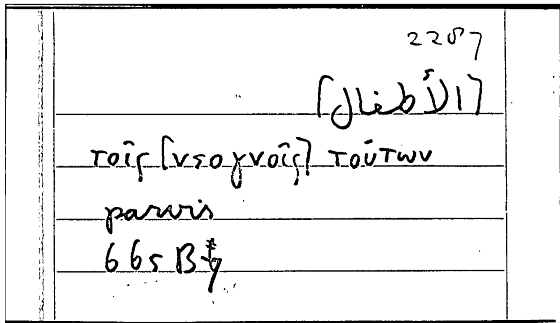 2287
[الأطفال]
τοῖς [νεογνοῖς] τούτων
parvis
665 B